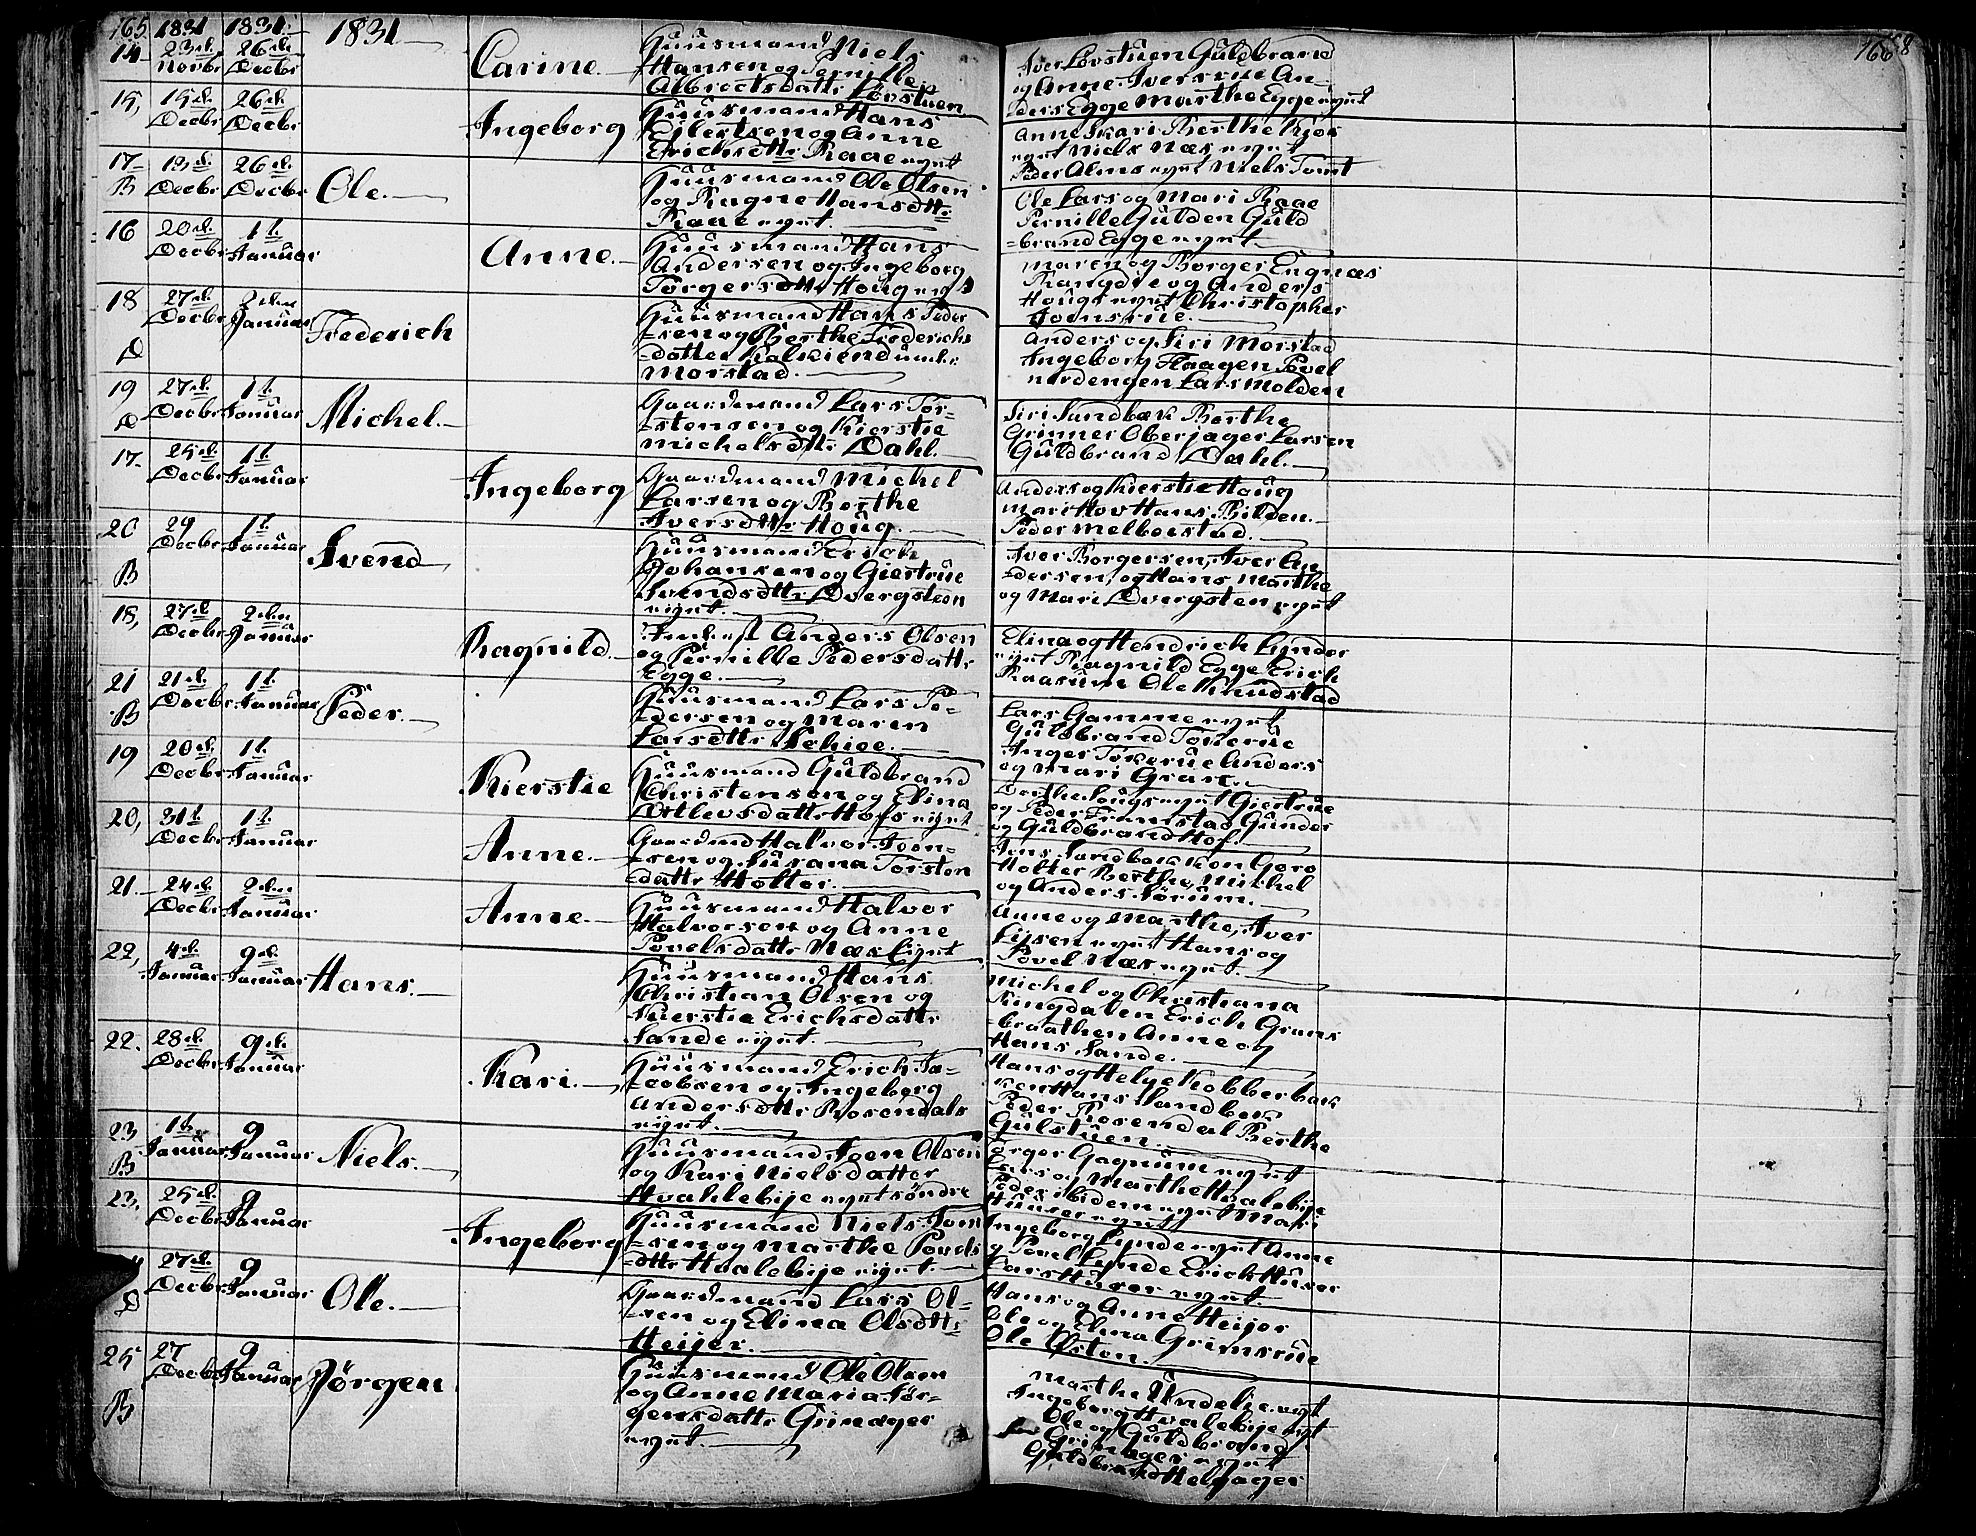 165. 1831 1831. 1831 166
14 23d. Novbr 26de Decbr Carine.
Huusmand Niels
Hansen og Pernille
Albrectsdattr Lövstuen
Iver Lövstuen Guldbrand
og Anne Iversrue An-
ders Egge Marthe Egge eynt
15, 15d. Decbr 26d. Decbr Ingeborg
Huusmand Hans
Eilertsen og Anne
Ericksdttr Raae eynt
Anne Skari Berthe Kjös
eynt Niels Næs eynt
Peder Alms eynt Niels Tomt
17. B 19d. Decbr 26d. Decbr Ole.
Huusmand Ole Olsen
og Ragne Hansdttr
Raae eynt.
Ole Lars og Mari Raae
Pernille Gulden Guld
=brand Egge eynt
16 20d. Decbr 1t. Januar Anne.
Huusmand Hans
Andersen og Ingeborg
Törgersdttr Houg eynt
Maren og Borger Engnæs
Rangdie og Anders
Hougs eynt Christopher
Joensrue.
18 D 27d. Decbr 2den Januar Frederich
Huusmand Hans Peder
=sen og Berthe Frederichs
=datter Kalvsiend under
Morstad.
Anders og Siri Morstad
Ingeborg Haagen Povel
nordengen Lars Molden
19 D 27d. Decbr 1t. Januar Michel.
Gaardmand Lars Tor-
stensen og Kierstie
Michelsdttr Dahl.
Siri Sundbæk Berthe
Grinner Oberjager Larsen
Guldbrand Dahl.
17. 25d. Decbr 1t. Januar Ingeborg
Gaardmand Michel
Larsen og Berthe
Iversdttr Houg.
Anders og Kierstie Houg
Mari Hov Hans Bilden.
Peder Melboestad.
20 B 29 Decbr 1t. Januar Svend
Huusmand Erich
Johansen og Giertrue
Svendsdttr Dvergsteen
eynt.
Iver Borgersen, Iver An
=dersen, og Hans Marthe
og Mari Dvergsten eynt
18, 27d. Decbr 2den Januar Ragnild.
Inderst Anders Olsen
og Pernille Pedersdattr
Egge.
Elina og Hendrich Lynder
eynt Ragnild Egge Erich
Raasum Ole Knudstad
21 B 21d. Decbr 1t. Januar Peder.
Huusmand Lars Pe-
=dersen og Maren
Larsdttr Schiee.
Lars Gamme eynt
Guldbrand Töserue
Inger Töserue Anders
og Mari Gran.
19 20d. Decbr 1t. Januar Kierstie
Huusmand Guldbrand
Christensen og Elina
Ditlevsdattr Hofs eynt
Berthe Hougs eynt Giertrue
og Peder Framstad Gunder
og Guldbrand Hof.
20, 31t Decbr 1t. Januar Anne.
Gaardmd Halvor Joen-
=sen og Susana Torsten
=dattr Holter.
Jens Sandbeckken Goro
Holter Berthe, Michel
og Anders Sörum.
21. 24d. Decbr 2den Januar Anne.
Huusmand Halvor
Halvorsen og Anne
Povelsdattr Næs Eynt
Anne og Marthe, Iver
Liisen eynt Hans og
Povel Næs eynt.
22, 4d. Januar 9d. Januar Hans.
Huusmand Hans
Christian Olsen og
Kierstie Erichsdattr
Sande eynt.
Michel og Christiana
Ringdalen Erich Grans
=braathen Anne og
Hans Sande.
22. 28d. Decbr 9d. Januar Kari.
Huusmand Erich Ja-
=cobsen og Ingeborg
Andersdttr Rosendals
eynt.
Hans og Helge Kobberbak
ken Hans Sandbeck
Peder Rosendal Berthe
Gulstuen.
23 B 1t. Januar 9 Januar Niels.
Huusmand Joen Olsen
og Kari Nielsdatter
Hvahlebÿe eynt söndre
Törger Gagnum eynt
Lars og Marthe Hvalebÿe
Peder ibidem eynt Mari
Huuser eynt
23, 25d. Decbr 9 Januar Ingeborg
Huusmand Niels Jon
=sen og Marthe Povels
=dttr Hvalebÿe eynt.
Ingeborg Lynde eynt Anne
og Povel Lynde Erich Huser
Lars Huser eynt.
D 27d. Decbr 9 Januar Ole.
Gaardmand Lars Ol-
=sen og Elina Olsdttr
Heijer.
Hans og Anne Heijer
Ole og Elina Grimsrue
Ole Östen
25 B 27 Decbr 9 Januar Jörgen
Huusmand Ole Olsen
og Anne Maria Jör-
gensdattr Grinager
eynt.
Marthe Undelie eynt
Ingeborg Hvalebÿe eynt
Ole og Guldbrand
Grinager eynt
Guldbrand Helgager